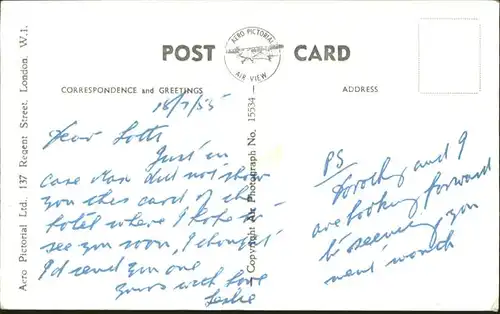 POST CARD
AERO PICTORIAL
AIR VIEW
CORRESPONDENCE and GREETINGS
ADDRESS
18/7/55
Dear
Just in
case Max did not show
you this card of the
hotel where I hope to
see you soon, I thought
I'd send you one
yours with love
Leslie
PS
Dorothy and I
are looking forward
to seeing you
next month
Aero Pictorial Ltd., 137 Regent Street, London, W.1.
Copyright Air Photograph No. 15534